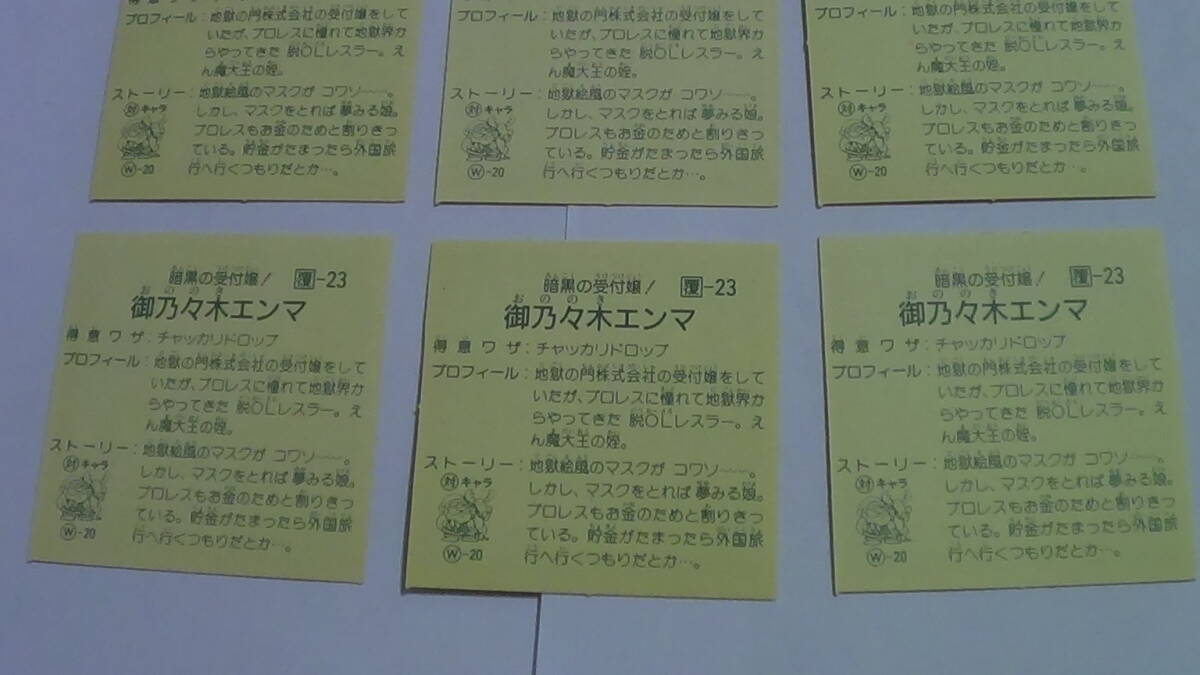 得意ワザ：チャッカリドロップ
プロフィール：地獄の門株式会社の受付嬢をして
いたが、プロレスに憧れて地獄界か
らやってきた 脱OLレスラー。え
ん魔大王の姪。
ストーリー：地獄絵風のマスクが コワソ〜〜。
しかし、マスクをとれば 夢みる娘。
プロレスもお金のためと割りきっ
ている。貯金がたまったら外国旅
行へ行くつもりだとか…。
対キャラ
W-20
プロフィール：地獄の門株式会社の受付嬢をして
いたが、プロレスに憧れて地獄界か
らやってきた 脱OLレスラー。え
ん魔大王の姪。
ストーリー：地獄絵風のマスクが コワソ〜〜。
しかし、マスクをとれば 夢みる娘。
プロレスもお金のためと割りきっ
ている。貯金がたまったら外国旅
行へ行くつもりだとか…。
対キャラ
W-20
プロフィール：地獄の門株式会社の受付嬢をして
いたが、プロレスに憧れて地獄界か
らやってきた 脱OLレスラー。え
ん魔大王の姪。
ストーリー：地獄絵風のマスクが コワソ〜〜。
しかし、マスクをとれば 夢みる娘。
プロレスもお金のためと割りきっ
ている。貯金がたまったら外国旅
行へ行くつもりだとか…。
対キャラ
W-20
暗黒の受付嬢！ 覆-23
御乃々木エンマ
得意ワザ：チャッカリドロップ
プロフィール：地獄の門株式会社の受付嬢をして
いたが、プロレスに憧れて地獄界か
らやってきた 脱OLレスラー。え
ん魔大王の姪。
ストーリー：地獄絵風のマスクが コワソ〜〜。
しかし、マスクをとれば 夢みる娘。
プロレスもお金のためと割りきっ
ている。貯金がたまったら外国旅
行へ行くつもりだとか…。
対キャラ
W-20
暗黒の受付嬢！ 覆-23
御乃々木エンマ
得意ワザ：チャッカリドロップ
プロフィール：地獄の門株式会社の受付嬢をして
いたが、プロレスに憧れて地獄界か
らやってきた 脱OLレスラー。え
ん魔大王の姪。
ストーリー：地獄絵風のマスクが コワソ〜〜。
しかし、マスクをとれば 夢みる娘。
プロレスもお金のためと割りきっ
ている。貯金がたまったら外国旅
行へ行くつもりだとか…。
対キャラ
W-20
暗黒の受付嬢！ 覆-23
御乃々木エンマ
得意ワザ：チャッカリドロップ
プロフィール：地獄の門株式会社の受付嬢をして
いたが、プロレスに憧れて地獄界か
らやってきた 脱OLレスラー。え
ん魔大王の姪。
ストーリー：地獄絵風のマスクが コワソ〜〜。
しかし、マスクをとれば 夢みる娘。
プロレスもお金のためと割りきっ
ている。貯金がたまったら外国旅
行へ行くつもりだとか…。
対キャラ
W-20